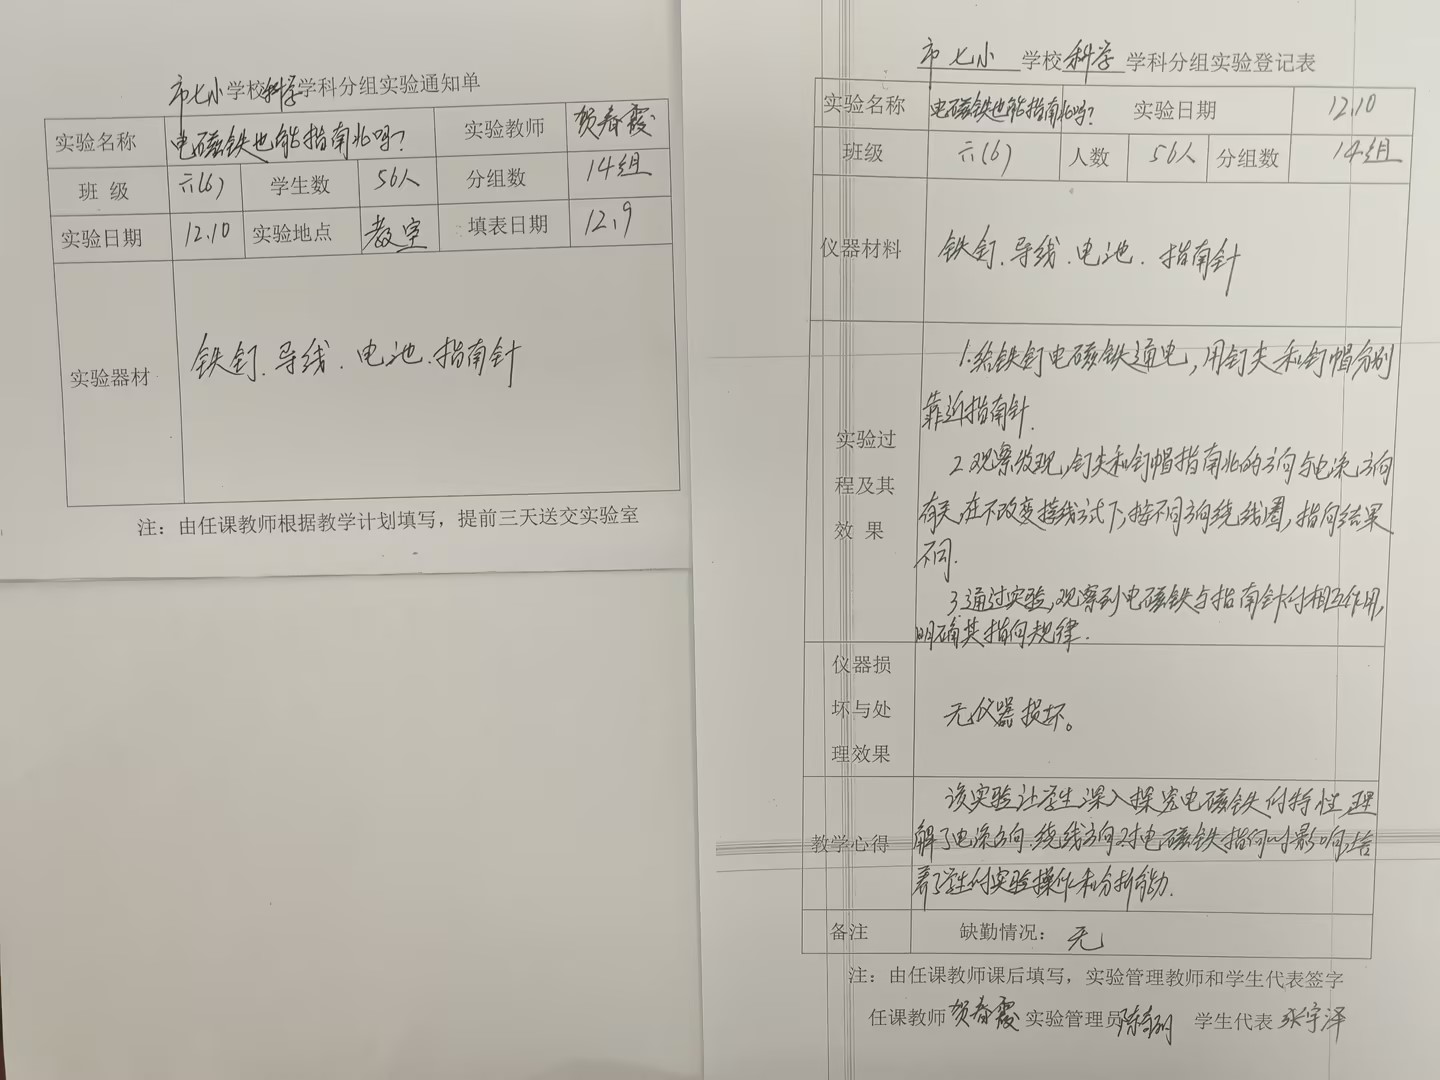 市七小学校科学学科分组实验通知单
实验名称 电磁铁也能指南北吗? 实验教师 贺春霞
班 级 六(6) 学生数 56人 分组数 14组
实验日期 12.10 实验地点 教室 填表日期 12.9
实验器材 铁钉.导线.电池.指南针
注：由任课教师根据教学计划填写，提前三天送交实验室
市七小 学校 科学 学科分组实验登记表
实验名称 电磁铁也能指南北吗? 实验日期 12.10
班级 六(6) 人数 56人 分组数 14组
仪器材料 铁钉.导线.电池.指南针
实验过
程及其
效 果
1.给铁钉电磁铁通电,用钉尖和钉帽分别
靠近指南针.
2.观察发现,钉尖和钉帽指南北的方向与电流方向
有关,在不改变接线方式下,按不同方向绕线圈,指向结果
不同.
3.通过实验,观察到电磁铁与指南针的相互作用,
明确其指向规律.
仪器损
坏与处
理效果
无仪器损坏。
教学心得
该实验让学生深入探究电磁铁的特性,理
解了电流方向.绕线方向对电磁铁指向的影响,培
养了学生的实验操作和分析能力.
备注 缺勤情况： 无
注：由任课教师课后填写，实验管理教师和学生代表签字
任课教师 贺春霞 实验管理员 学生代表 张宇泽